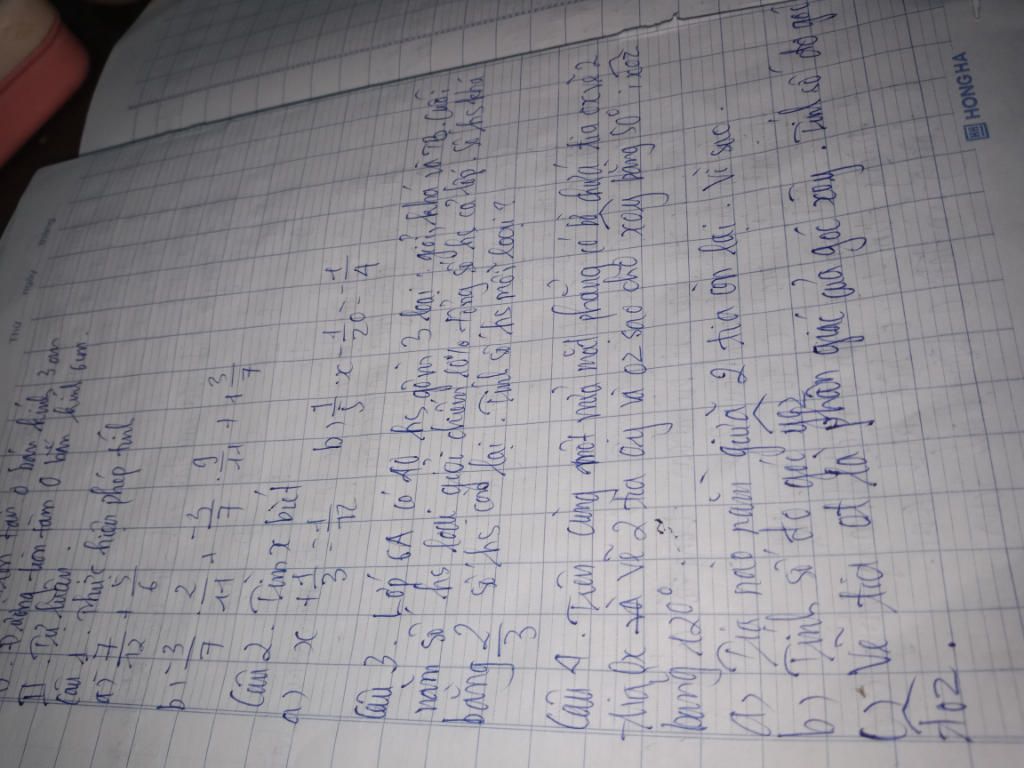 Đường tròn tâm O bán kính 3cm
D. Đường tròn tâm O bán kính 6cm.
II. Tự luận.
Câu 1. Thực hiện phép tính
a) 7/12 + 5/6
b) -3/7 . 2/11 + -3/7 . 9/11 + 1 3/7
Câu 2. Tìm x biết
a) x + 1/3 = -1/12 b) 1/5 . x - 1/20 = -1/4
Câu 3. Lớp 6A có 40 hs gồm 3 loại: giỏi, khá và TB. Cuối
năm số hs loại giỏi chiếm 10% tổng số hs cả lớp. số hs
bằng 2/3 số hs còn lại. Tính số hs mỗi loại?
Câu 4. Trên cùng một nửa mặt phẳng có bờ chứa tia ox vẽ 2
tia vẽ 2 tia oy và oz sao cho xoy bằng 50°. xoz
bằng 120°.
a) Tia nào nằm giữa 2 tia còn lại. Vì sao.
b) Tính số đo góc yoz
c) Vẽ tia ot là phân giác của góc xoy. Tính số đo góc
toz.
HONG HA
Thứ
Ngày